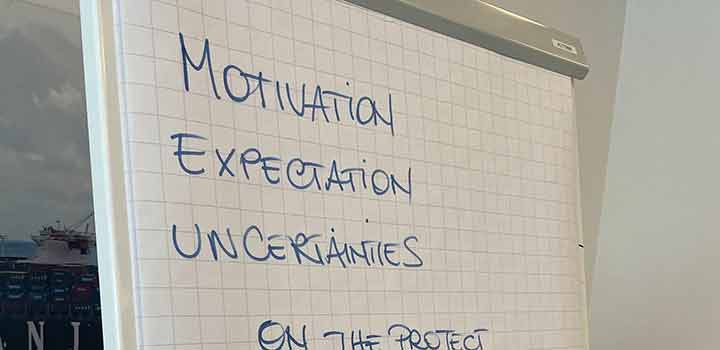 MOTIVATION
EXPECTATION
UNCERTAINTIES
ON THE PROJECT